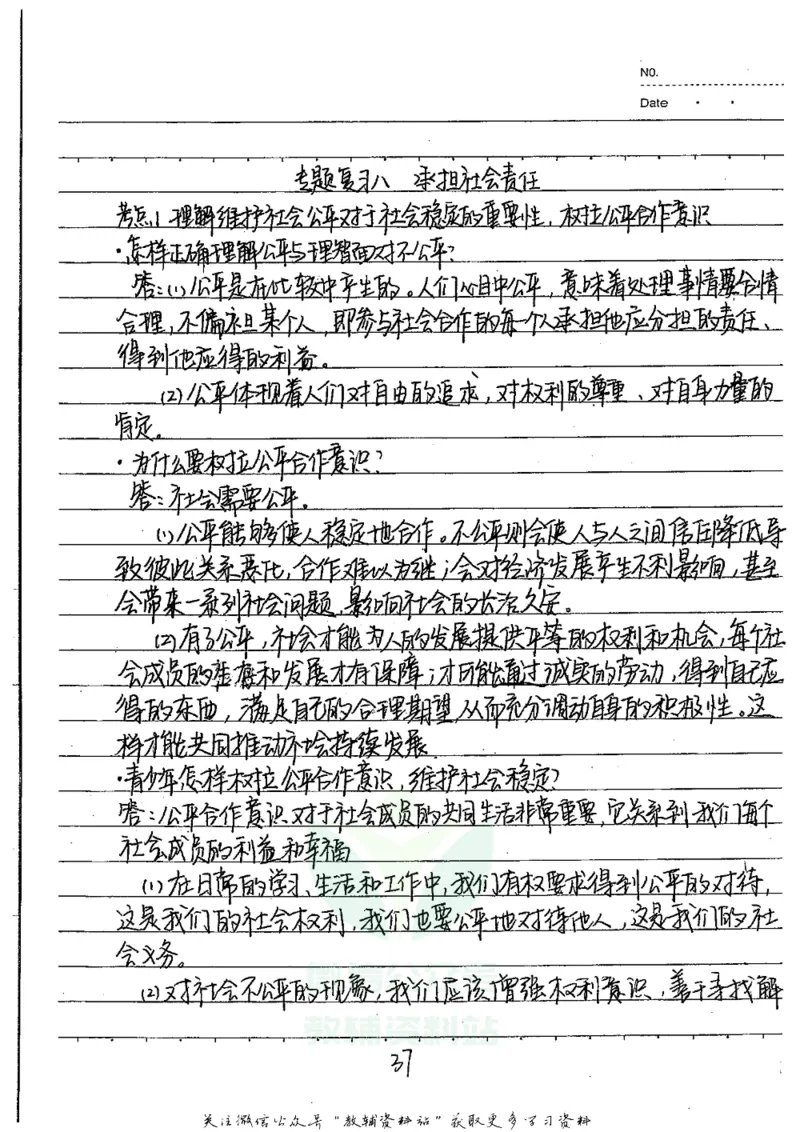 NO.
Date
专题复习八 承担社会责任
考点1 理解维护社会公平对于社会稳定的重要性,权拉公平合作意识
·怎样正确理解公平与理智面对不公平?
答:(1)公平是在比较中产生的。人们心目中公平,意味着处理事情要合情
合理,不偏袒某个人,即参与社会合作的每一个人承担他应分担的责任、
得到他应得的利益。
(2)公平体现着人们对自由的追求,对权利的尊重、对自身力量的
肯定。
·为什么要权拉公平合作意识?
答:社会需要公平。
(1)公平能够使人稳定地合作。不公平则会使人与人之间信任降低导
致彼此关系恶化,合作难以为继;会对经济发展产生不利影响,甚至
会带来一系列社会问题,影响社会的长治久安。
(2)有了公平,社会才能为人的发展提供平等的权利和机会,每个社
会成员的生存和发展才有保障;才可能通过诚实的劳动,得到自己应
得的东西,满足自己的合理期望,从而充分调动自身的积极性。这
样才能共同推动社会持续发展
·青少年怎样权拉公平合作意识,维护社会稳定?
答:公平合作意识对于社会成员的共同生活非常重要,它关系到我们每个
社会成员的利益和幸福
(1)在日常的学习、生活和工作中,我们有权要求得到公平的对待,
这是我们的社会权利,我们也要公平地对待他人,这是我们的社
会义务。
(2)对社会不公平的现象,我们应该增强权利意识,善于寻找解
教辅资料站
37
关注微信公众号"教辅资料站"获取更多学习资料